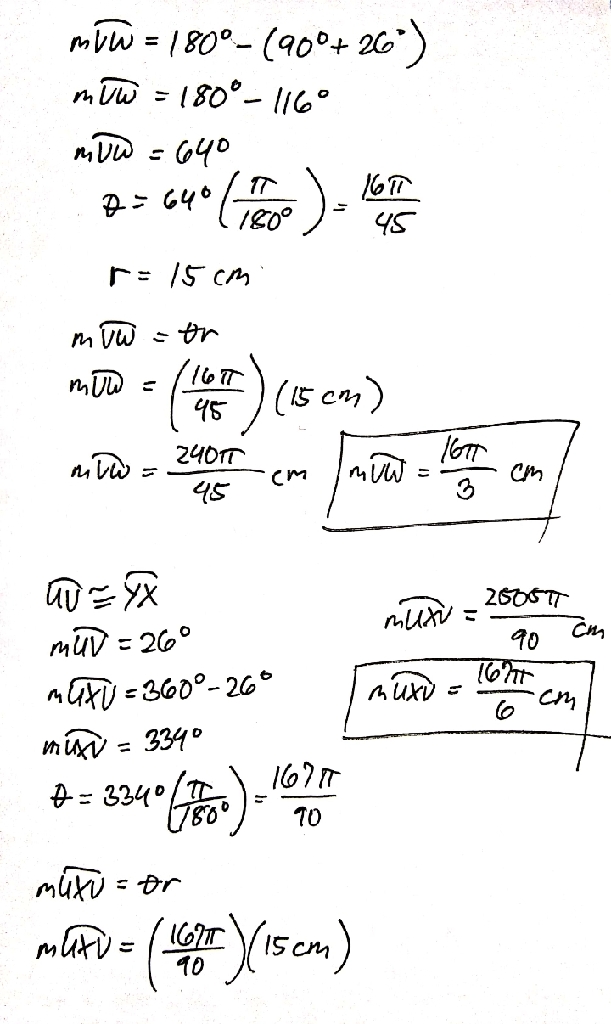 mVW = 180° - (90° + 26°)
mVW = 180° - 116°
mVW = 64°
θ = 64° (π/180°) = 16π/45
r = 15 cm
mVW = θr
mVW = (16π/45) (15 cm)
mVW = 240π/45 cm
mVW = 16π/3 cm
UV ≅ YX
mUV = 26°
mUXV = 360° - 26°
mUXV = 334°
θ = 334° (π/180°) = 167π/90
mUXV = θr
mUXV = (167π/90) (15 cm)
mUXV = 2505π/90 cm
mUXV = 167π/6 cm